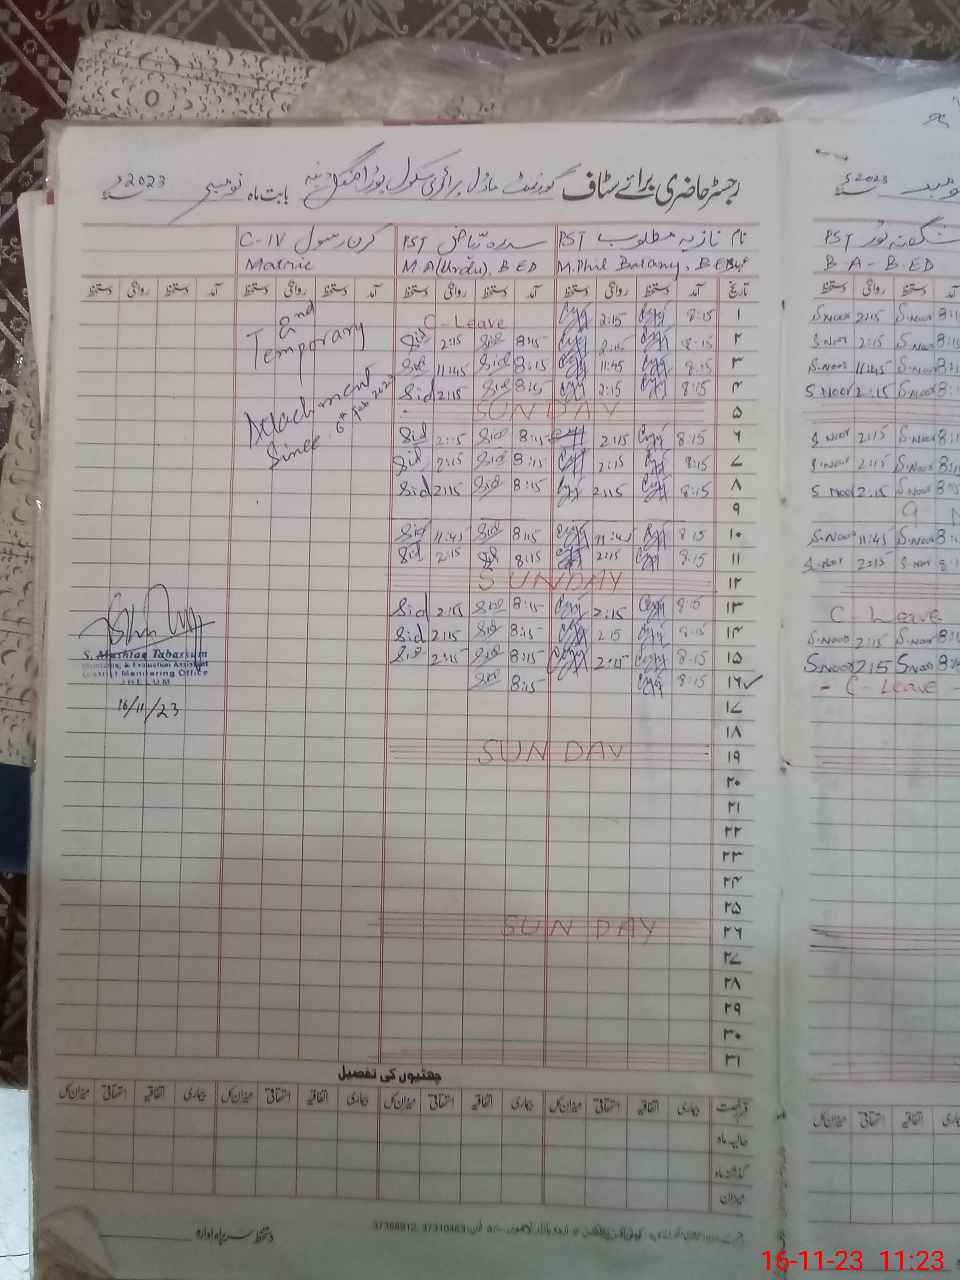 رجسٹر حاضری برائے سٹاف گورنمنٹ ماڈل پرائمری سکول بابت ماہ نومبر 2023ء
2023ء
نام نازیہ مطلوب PST سدرہ ریاض PST کرن رسول C-IV
M.Phil Botany, B.ED M A (Urdu), B.ED Matric
شگفتہ نور PST
B.A - B.ED
تاریخ آمد دستخط روانگی دستخط آمد دستخط روانگی دستخط آمد دستخط روانگی دستخط آمد دستخط روانگی دستخط
۱ 8:15 2:15 C-Leave
۲ 8:15 2:15 8:15 Sid 2:15 Sid
۳ 8:15 11:45 8:15 Sid 11:45 Sid
۴ 8:15 2:15 8:15 Sid 2:15 Sid
۵ SUNDAY
۶ 8:15 2:15 8:15 Sid 2:15 Sid
۷ 8:15 2:15 8:15 Sid 2:15 Sid
۸ 8:15 2:15 8:15 Sid 2:15 Sid
۹
۱۰ 8:15 11:45 8:15 Sid 11:45 Sid
۱۱ 8:15 2:15 8:15 Sid 2:15 Sid
۱۲ SUNDAY
۱۳ 8:15 2:15 8:15 Sid 2:15 Sid
۱۴ 8:15 2:15 8:15 Sid 2:15 Sid
۱۵ 8:15 2:15 8:15 Sid 2:15 Sid
۱۶ 8:15 8:15 Sid
۱۷
۱۸
۱۹ SUNDAY
۲۰
۲۱
۲۲
۲۳
۲۴
۲۵
۲۶ SUNDAY
۲۷
۲۸
۲۹
۳۰
۳۱
Temporary
Attachment
Since 6th Feb 2023
S. Mushtaq Tabassum
Monitoring & Evaluation Assistant
District Monitoring Office
JHELUM
16/11/23
آمد دستخط روانگی دستخط
S.Noor 2:15 S.Noor
S.Noor 2:15 S.Noor
S.Noor 11:45 S.Noor
S.Noor 2:15 S.Noor
S.Noor 2:15 S.Noor
S.Noor 2:15 S.Noor
S.Noor 2:15 S.Noor
S.Noor 11:45 S.Noor
S.Noor 2:15 S.Noor
C-Leave
S.Noor 2:15 S.Noor
S.Noor 2:15 S.Noor
- C-Leave -
چھٹیوں کی تفصیل
قسم رخصت بیماری اتفاقیہ استحقاقی میزان کل بیماری اتفاقیہ استحقاقی میزان کل بیماری اتفاقیہ استحقاقی میزان کل بیماری اتفاقیہ استحقاقی میزان کل
حالیہ ماہ
گذشتہ ماہ
میزان
دستخط سربراہ ادارہ
16-11-23 11:23